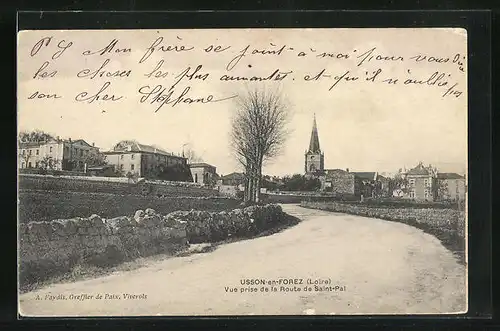 P.S. Mon frère se joint à moi pour vous dire
les choses les plus amantes et qu'il n'oublie pas
son cher Stéphane
USSON-en-FOREZ (Loire)
Vue prise de la Route de Saint-Pal
A. Faydit, Greffier de Paix, Viverols